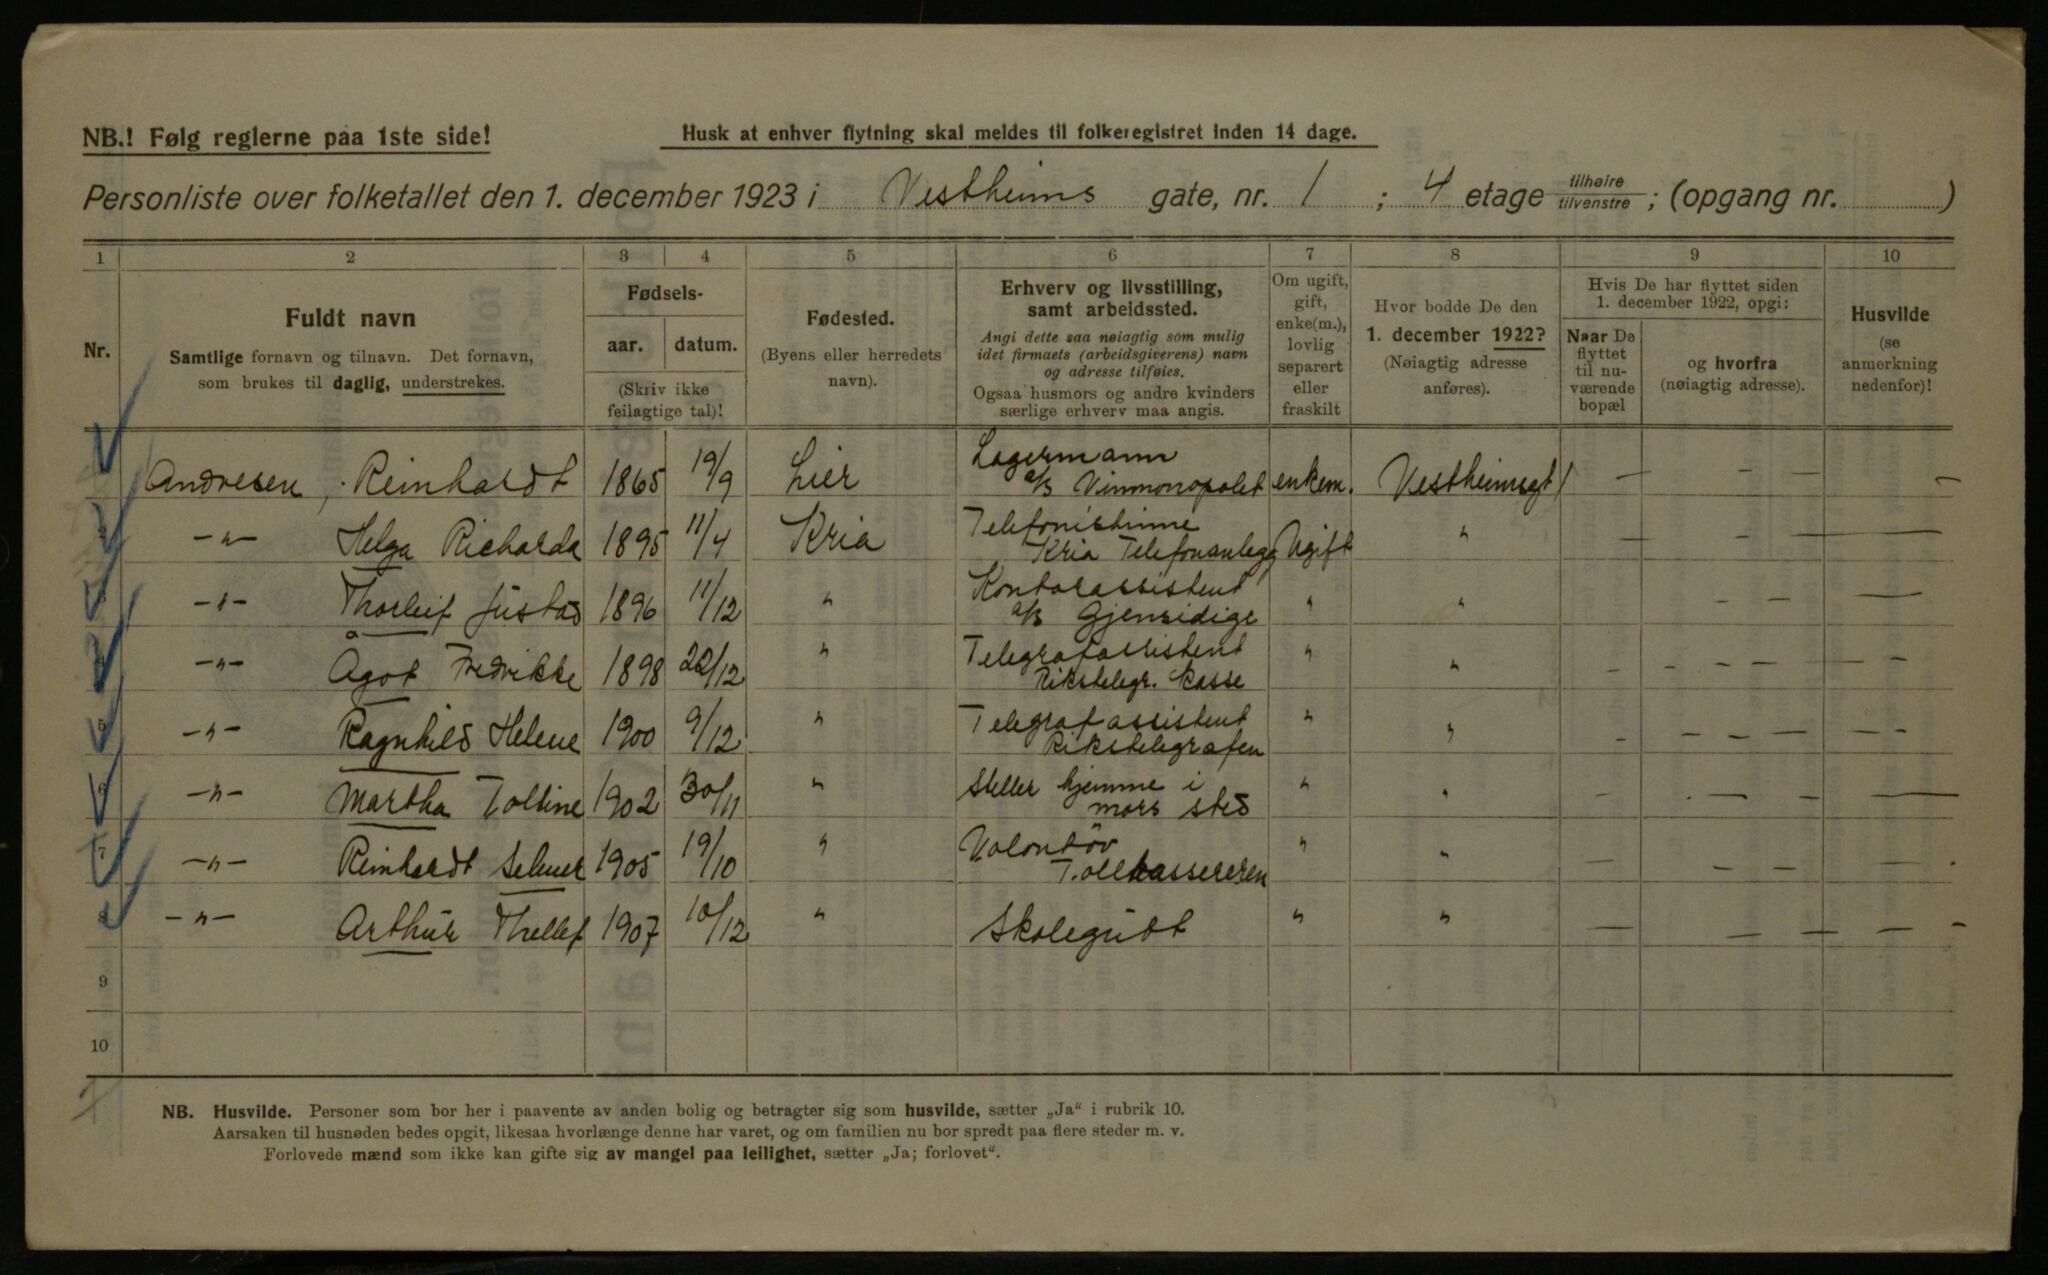 NB.! Følg reglerne paa 1ste side!
Husk at enhver flytning skal meldes til folkeregistret inden 14 dage.
Personliste over folketallet den 1. december 1923 i Vestheims gate, nr. 1 ; 4 etage tilhøire tilvenstre ; (opgang nr. )
1 2 3 4 5 6 7 8 9 10
Nr.
Fuldt navn
Samtlige fornavn og tilnavn. Det fornavn,
som brukes til daglig, understrekes.
Fødsels-
aar. datum.
(Skriv ikke
feilagtige tal)!
Fødested.
(Byens eller herredets
navn).
Erhverv og livsstilling,
samt arbeidssted.
Angi dette saa nøiagtig som mulig
idet firmaets (arbeidsgiverens) navn
og adresse tilføies.
Ogsaa husmors og andre kvinders
særlige erhverv maa angis.
Om ugift,
gift,
enke(m.),
lovlig
separert
eller
fraskilt
Hvor bodde De den
1. december 1922?
(Nøiagtig adresse
anføres).
Hvis De har flyttet siden
1. december 1922, opgi:
Naar De
flyttet
til nu-
værende
bopæl
og hvorfra
(nøiagtig adresse).
Husvilde
(se
anmerkning
nedenfor)!
Andresen, Reinhardt 1865 19/9 Lier Lagermann
a/s Vinmonopolet enkem. Vestheimsgt 1 — - — -
2 —"— Helga Richarda 1895 11/4 Kria Telefonistinne
Kria Telefonanlegg Ugift " — - — —
3 -"- Thorleif Justad 1896 11/12 " Kontorassistent
a/s Gjensidige " " - - —
4 —"— Ågot Fredrikke 1898 22/12 " Telegrafassistent
Rikstelegr. kasse " " - - - - - - -
5 —"— Ragnhild Helene 1900 9/12 " Telegrafassistent
Rikstelegrafen " " - - - - - - -
6 —"— Martha Toltine 1902 30/11 " Steller hjemme i
mors sted " " - - — - —
7 —"— Reinhardt Selmer 1905 19/10 " Volontör
Tollkassereren " " — - - —
8 —"— Arthur Thellef 1907 10/12 " Skolegutt " " — — — — -
9
10
NB. Husvilde. Personer som bor her i paavente av anden bolig og betragter sig som husvilde, sætter „Ja“ i rubrik 10.
Aarsaken til husnøden bedes opgit, likesaa hvorlænge denne har varet, og om familien nu bor spredt paa flere steder m. v.
Forlovede mænd som ikke kan gifte sig av mangel paa leilighet, sætter „Ja; forlovet“.